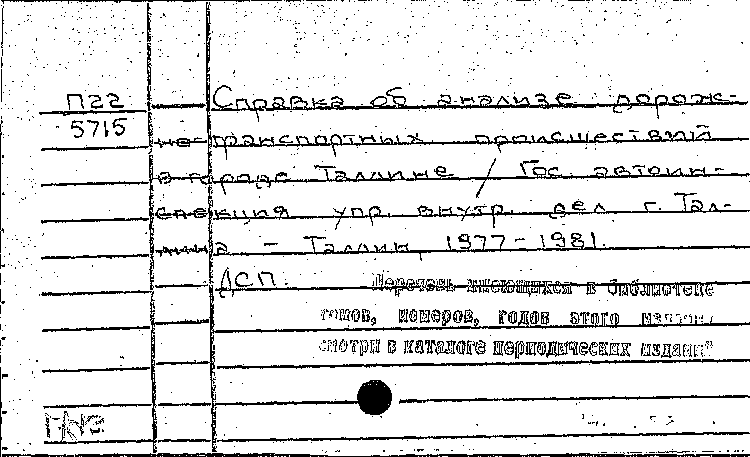 П22
5715
Справка об анализе дорож-
но-транспортных происшествий
в городе Таллине / Гос. автоин-
спекция упр. внутр. дел г. Тал-
лина - Таллин, 1977-1981.
ДСП.
Перечень имеющихся в библиотеке
томов, номеров, годов этого издания
смотри в каталоге периодических изданий